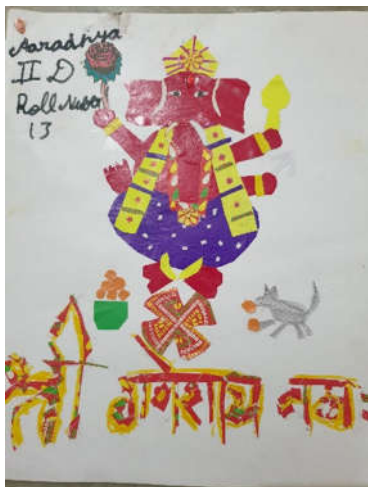 Aaradhya
II D
Roll Number
13
श्री गणेशाय नमः